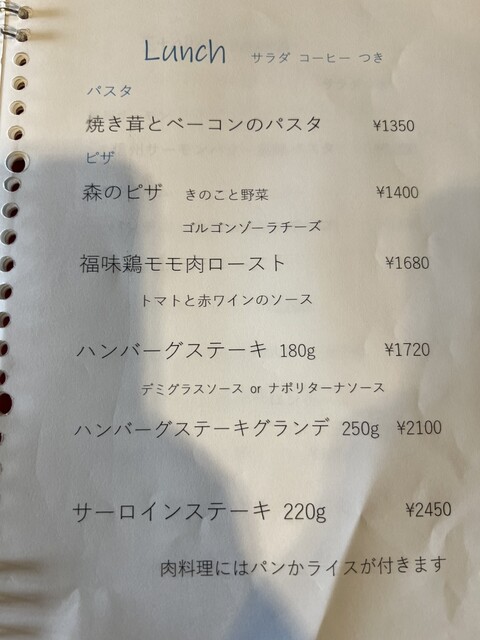 Lunch サラダ コーヒー つき
パスタ
焼き茸とベーコンのパスタ ¥1350
ピザ
森のピザ きのこと野菜 ¥1400
ゴルゴンゾーラチーズ
福味鶏モモ肉ロースト ¥1680
トマトと赤ワインのソース
ハンバーグステーキ 180g ¥1720
デミグラスソース or ナポリターナソース
ハンバーグステーキグランデ 250g ¥2100
サーロインステーキ 220g ¥2450
肉料理にはパンかライスが付きます